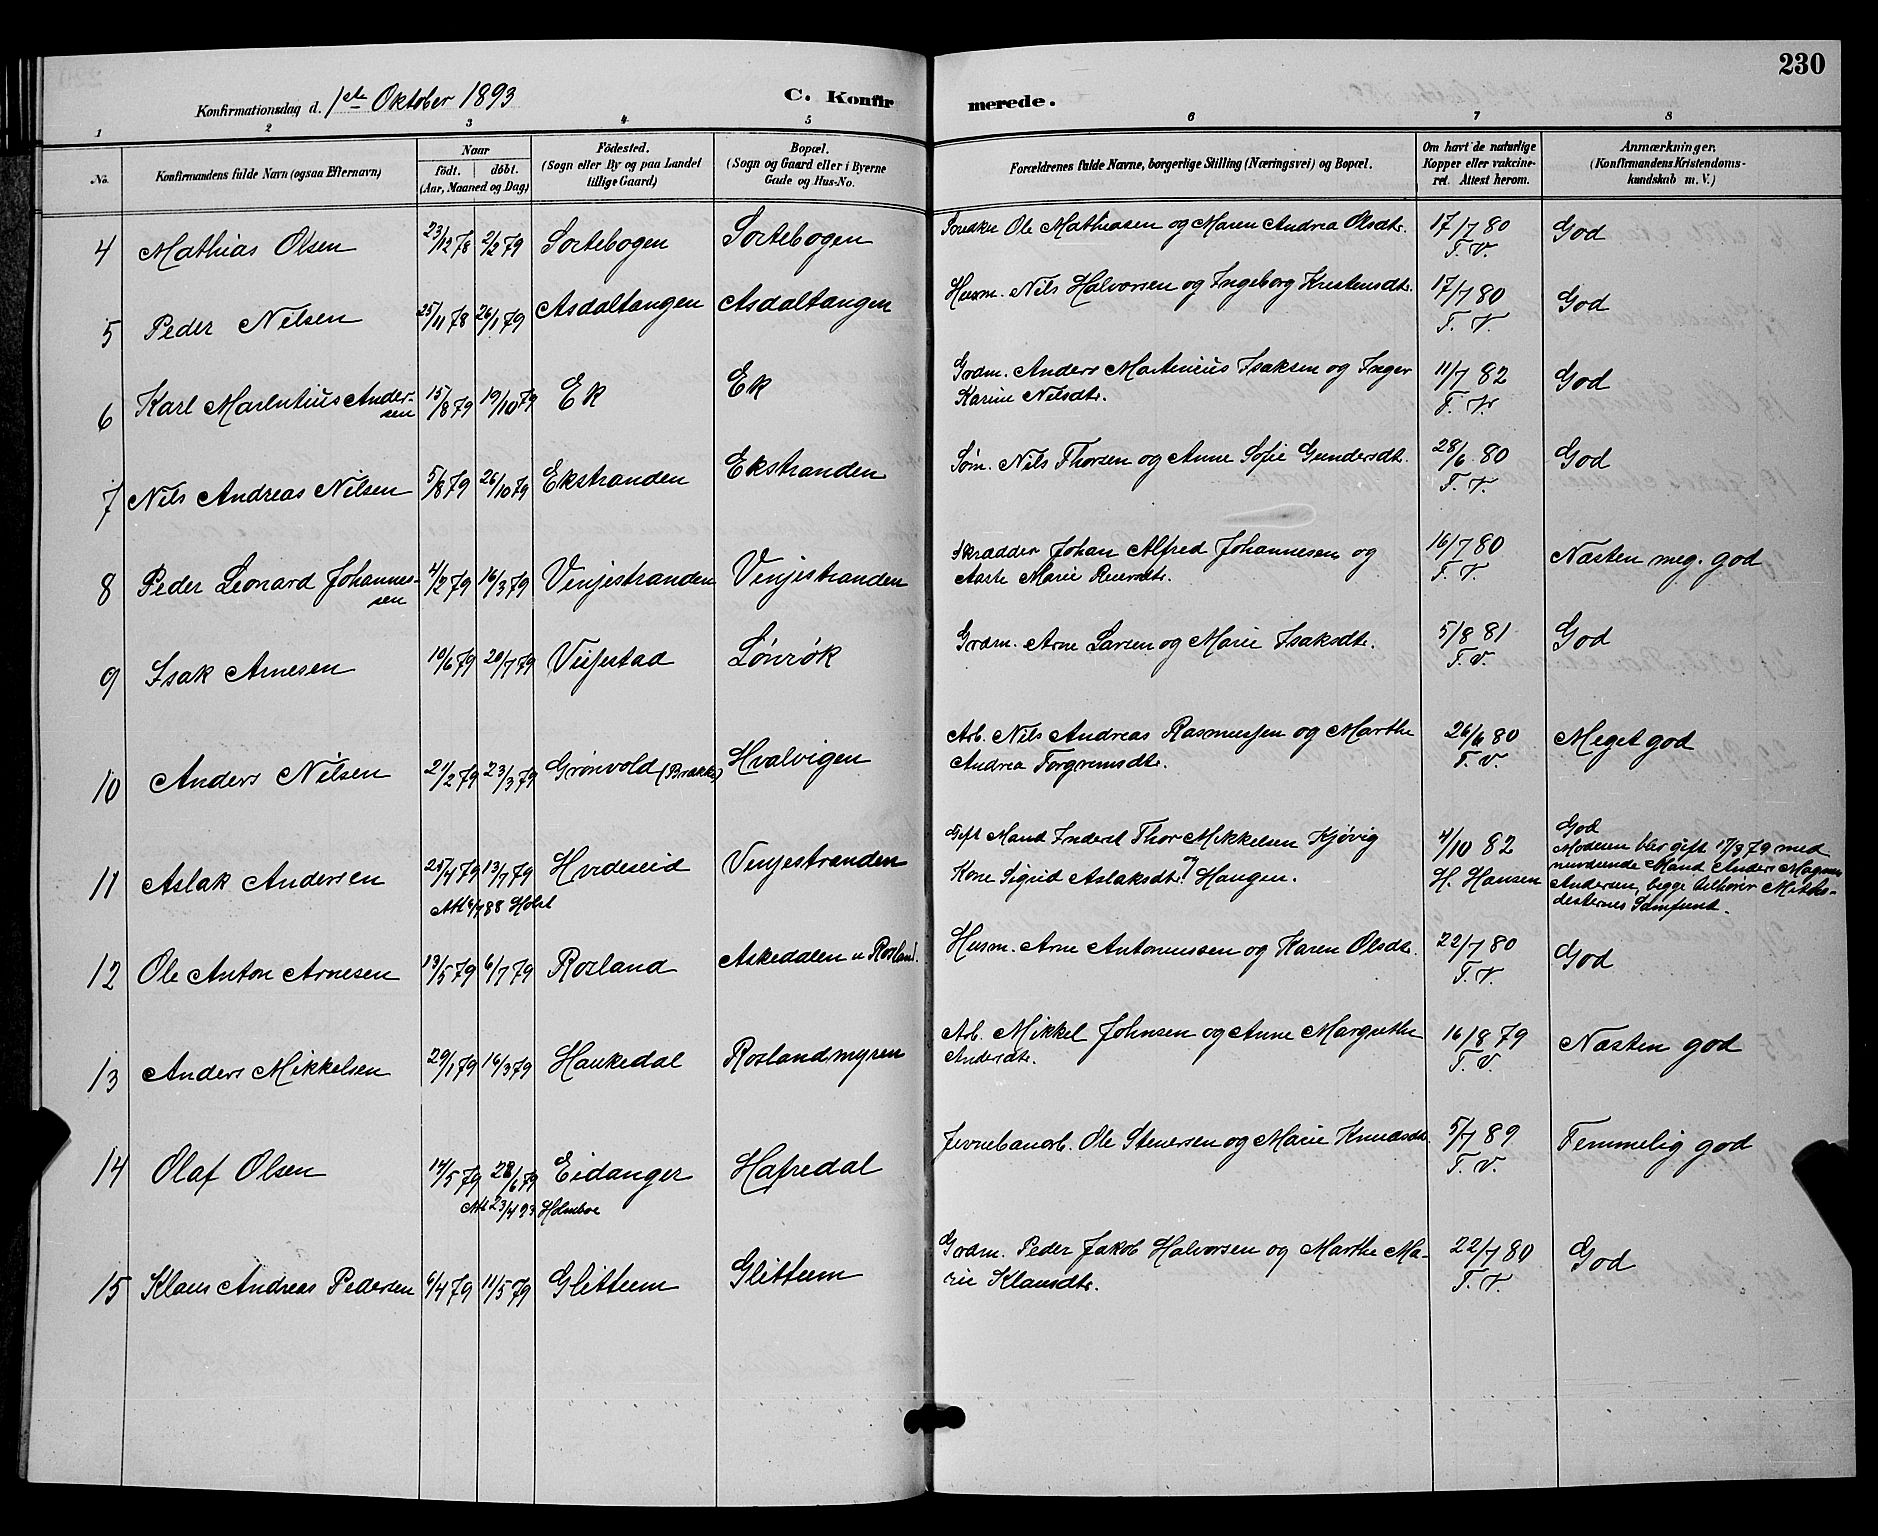 230
Konfirmationsdag d. 1ste Oktober 1893 C. Konfirmerede.
1 2 3 4 5 6 7 8
No. Konfirmandens fulde Navn (ogsaa Efternavn) Naar födt. döbt. (Aar, Maaned og Dag) Födested. (Sogn eller By og paa Landet tillige Gaard) Bopæl. (Sogn og Gaard eller i Byerne Gade og Hus-No. Forældrenes fulde Navne, borgerlige Stilling (Næringsvei) og Bopæl. Om havt de naturlige Kopper eller vakcineret. Attest herom. Anmærkninger. (Konfirmandens Kristendomskundskab m. V.)
4 Mathias Olsen 23/12 78 2/2 79 Sortebogen Sortebogen Ole Mathiasen og Maren Andrea Olsdtr. 17/7 80 God
T. V.
5 Peder Nilsen 25/11 78 26/1 79 Asdaltangen Asdaltangen Husm. Nils Halvorsen og Ingeborg Kristensdtr. 17/7 80 God
T. V.
6 Karl Marentius Ander- 15/8 79 19/10 79 Ek Ek Grdm. Anders Martinius Isaksen og Inger 11/7 82 God
sen Karine Nilsdtr. T. V.
7 Nils Andreas Nilsen 5/8 79 26/10 79 Ekstranden Ekstranden Søm. Nils Thorsen og Anne Sofie Gundersdtr. 28/6 80 God
T. V.
8 Peder Leonard Johannes- 4/2 79 16/3 79 Venjestranden Venjestranden Skrædder Johan Alfred Johannesen og 16/7 80 Næsten meg. god
sen Aaste Marie T. V.
9 Isak Arnesen 10/6 79 20/7 79 Viifestad Lønrøk Grdm. Arne Larsen og Marie Isaksdtr. 5/8 81 God
T. V.
10 Anders Nilsen 21/2 79 23/3 79 Grönvold (Brække) Hvalvigen Arb. Nils Andreas Rasmussen og Marthe 26/6 80 Meget god
Andrea Torgrimsdtr. T. V.
11 Aslak Andersen 25/4 79 13/7 79 Hvideseid Venjestranden Gift Mand Inderst Thor Mikkelsen Kjövig 4/10 82 God
og Kone Sigrid Aslaksdtr. Haugen. H. Hansen Moderen blev gift 17/9 79 med
nuværende Mand Anders Magnus
Andersen, begge tilhører Metho-
disternes Samfund.
Att 88 Holst
12 Ole Anton Arnesen 13/5 79 6/7 79 Rosland Askedalen u. Rosland. Husm. Arne Antonussen og Karen Olsdtr. 22/7 80 God
T. V.
13 Anders Mikkelsen 29/1 79 16/3 79 Haukedal Roslandmyren Arb. Mikkel Johnsen og Anne Margrethe 16/8 79 Næsten god
Andersdtr. T. V.
14 Olaf Olsen 14/5 79 28/6 79 Eidanger Hafredal Jernebanarb. Ole Stenersen og Marie Knudsdtr. 5/7 89 Temmelig god
Att 23/4 93 Holmboe T. V.
15 Klaus Andreas Pedersen 6/4 79 11/5 79 Glittum Glittum Grdm. Peder Jakob Halvorsen og Marthe Ma- 22/7 80 God
rie Klausdtr. T. V.